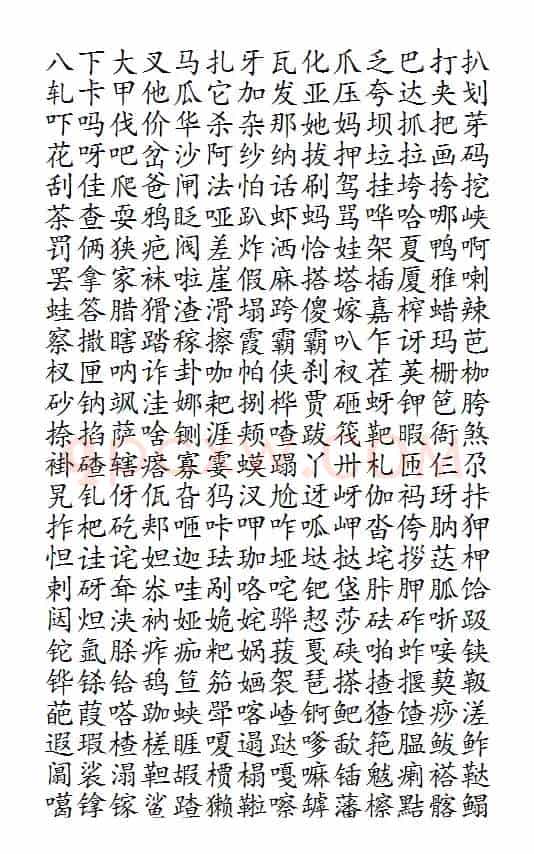 八下大叉马扎牙瓦化爪乏巴打扒
轧卡甲他瓜它加发亚压夸达夹划
吓吗伐价华杀杂那她妈坝抓把芽
花呀吧岔沙阿纱纳拔押垃拉画码
刮佳爬爸闸法怕话刷驾挂垮挎挖
茶查耍鸦眨哑趴虾蚂骂哗哈哪峡
罚俩狭疤阀差炸洒恰娃架夏鸭啊
罢拿家袜啦崖假麻搭塔插厦雅喇
蛙答腊猾渣滑塌跨傻嫁嘉榨蜡辣
察撒瞎踏稼擦霞霸霸叭乍讶玛芭
杈匣呐诈卦咖帕侠刹衩茬荚栅枷
砂钠飒洼娜耙捌桦贾砸蚜钾笆胯
捺掐萨啥铡涯颊喳跋筏靶暇衙煞
褂碴辖瘩寡霎蟆蹋丫卅札匝仨尕
旯钆伢佤旮犸汊尬迓岈伽祃玡挂
拃杷矻郏咂咔呷咋呱岬沓侉肭狎
怛诖诧妲迦珐珈垭垯挞垞拶荙柙
刺砑耷哇剐咯咤钯垡胩胛胍饸
闼炟浃衲娅姽姹骅恝莎砝砟哳趿
铊氩脎痄痂粑娲菝戛硖啪蚱唼铗
铧铩铪鸹笪笳婳袈琶搽揸揠葜靸
葩葭嗒跏蛱斝喀嵖锕鲃猹馇痧溠
遐瑕楂槎睚嗄遢跶嗲歃筢腽鲅鲊
阖裟溻靼嘏槚榻嘎嘛锸魃瘌褡鞑
噶镎镓鲨蹅獭鞡嚓罅藩檫黠髂鳎